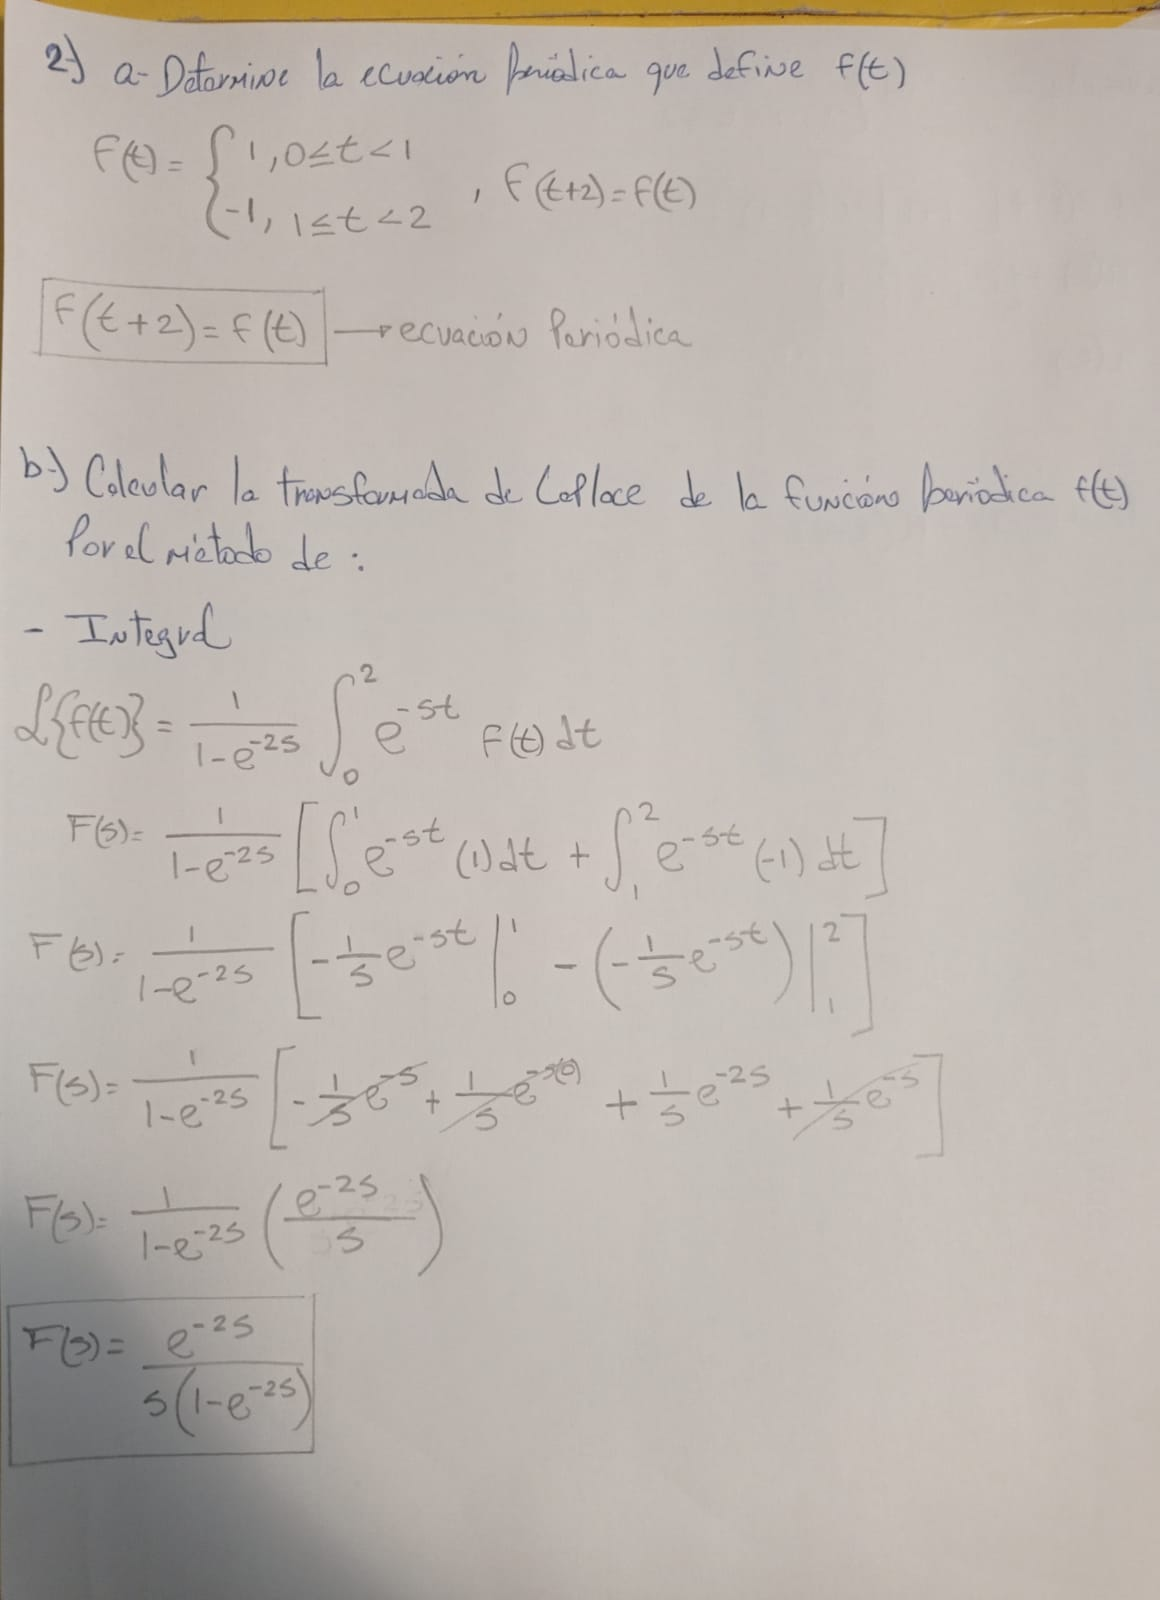 2-) a- Determine la ecuación periódica que define f(t)
F(t) = { 1, 0≤t<1
-1, 1≤t<2 , F(t+2)=F(t)
F(t+2)=F(t) → ecuación Periódica
b-) Calcular la transformada de Laplace de la función periódica f(t)
Por el método de :
- Integral
ℒ{f(t)} = 1/(1-e^-2s) ∫₀² e^-st F(t) dt
F(s)= 1/(1-e^-2s) [∫₀¹ e^-st (1) dt + ∫₁² e^-st (-1) dt]
F(s)= 1/(1-e^-2s) [-1/s e^-st |₀¹ - (-1/s e^-st)|₁²]
F(s)= 1/(1-e^-2s) [-1/s e^-s + 1/s e^-s(0) + 1/s e^-2s + 1/s e^-s]
F(s)= 1/(1-e^-2s) (e^-2s/s)
F(s)= e^-2s/(s(1-e^-2s))